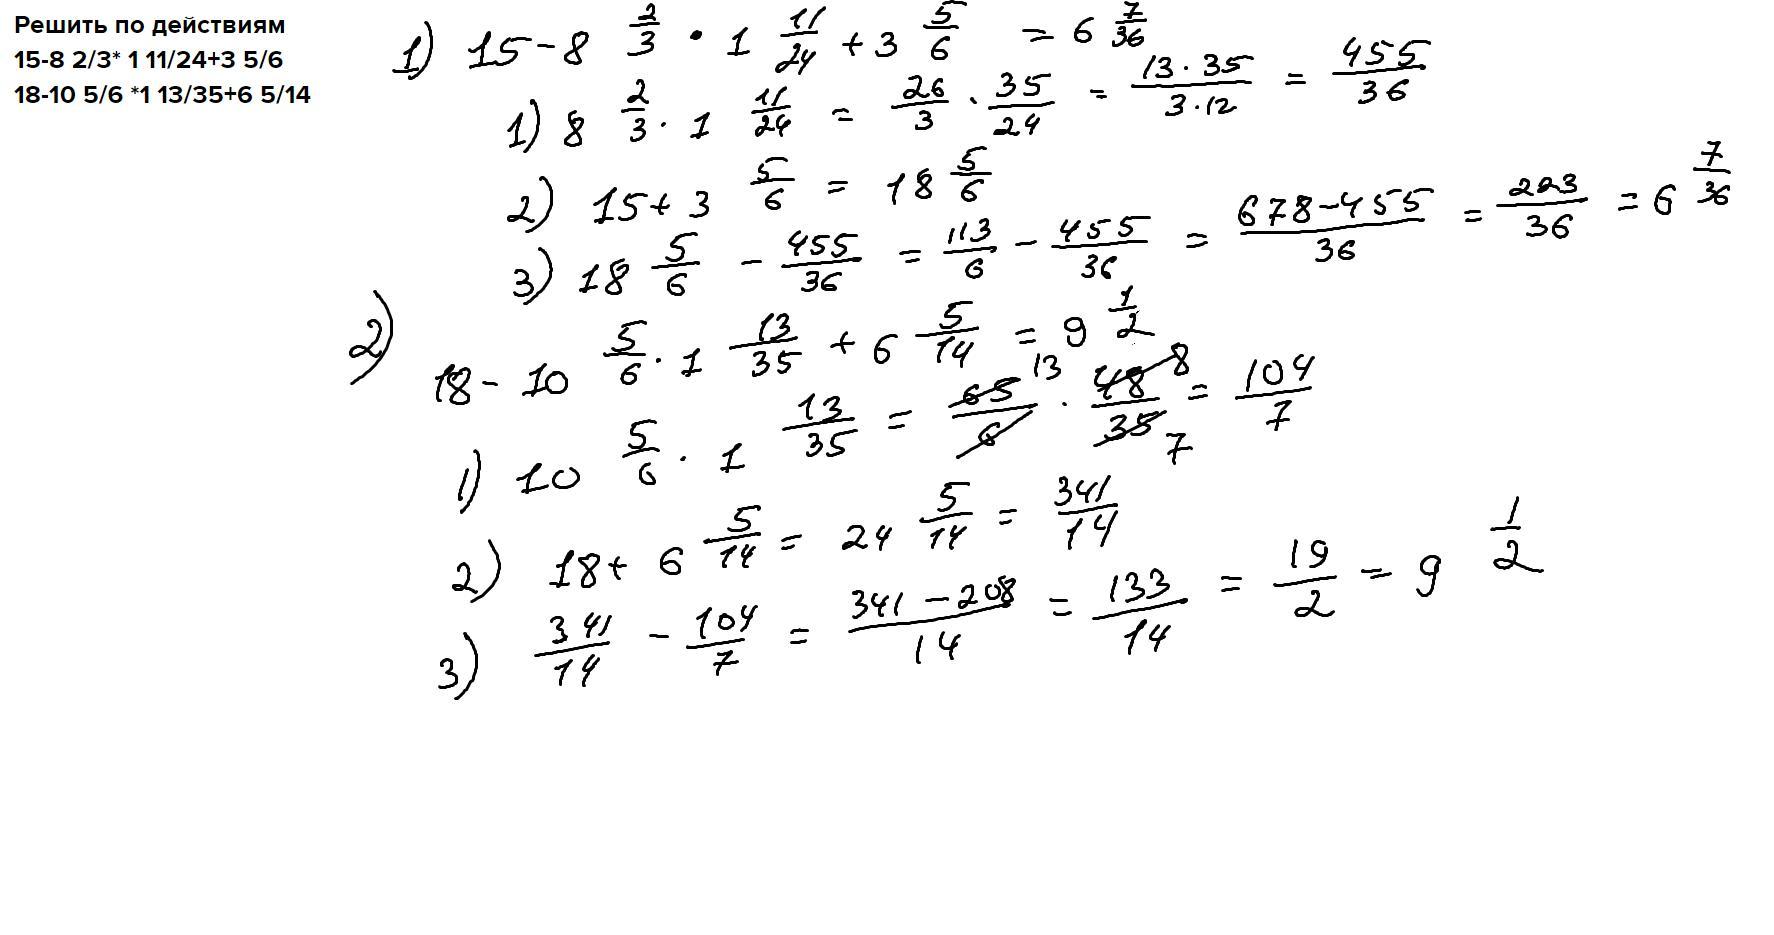 Решить по действиям
15-8 2/3* 1 11/24+3 5/6
18-10 5/6 *1 13/35+6 5/14
1) 15 - 8 2/3 • 1 11/24 + 3 5/6 = 6 7/36
1) 8 2/3 · 1 11/24 = 26/3 · 35/24 = 13·35/3·12 = 455/36
2) 15 + 3 5/6 = 18 5/6
3) 18 5/6 - 455/36 = 113/6 - 455/36 = 678-455/36 = 223/36 = 6 7/36
2) 18 - 10 5/6 · 1 13/35 + 6 5/14 = 9 1/2
1) 10 5/6 · 1 13/35 = 65/6 13 · 48/35 8 7 = 104/7
2) 18 + 6 5/14 = 24 5/14 = 341/14
3) 341/14 - 104/7 = 341-208/14 = 133/14 = 19/2 = 9 1/2